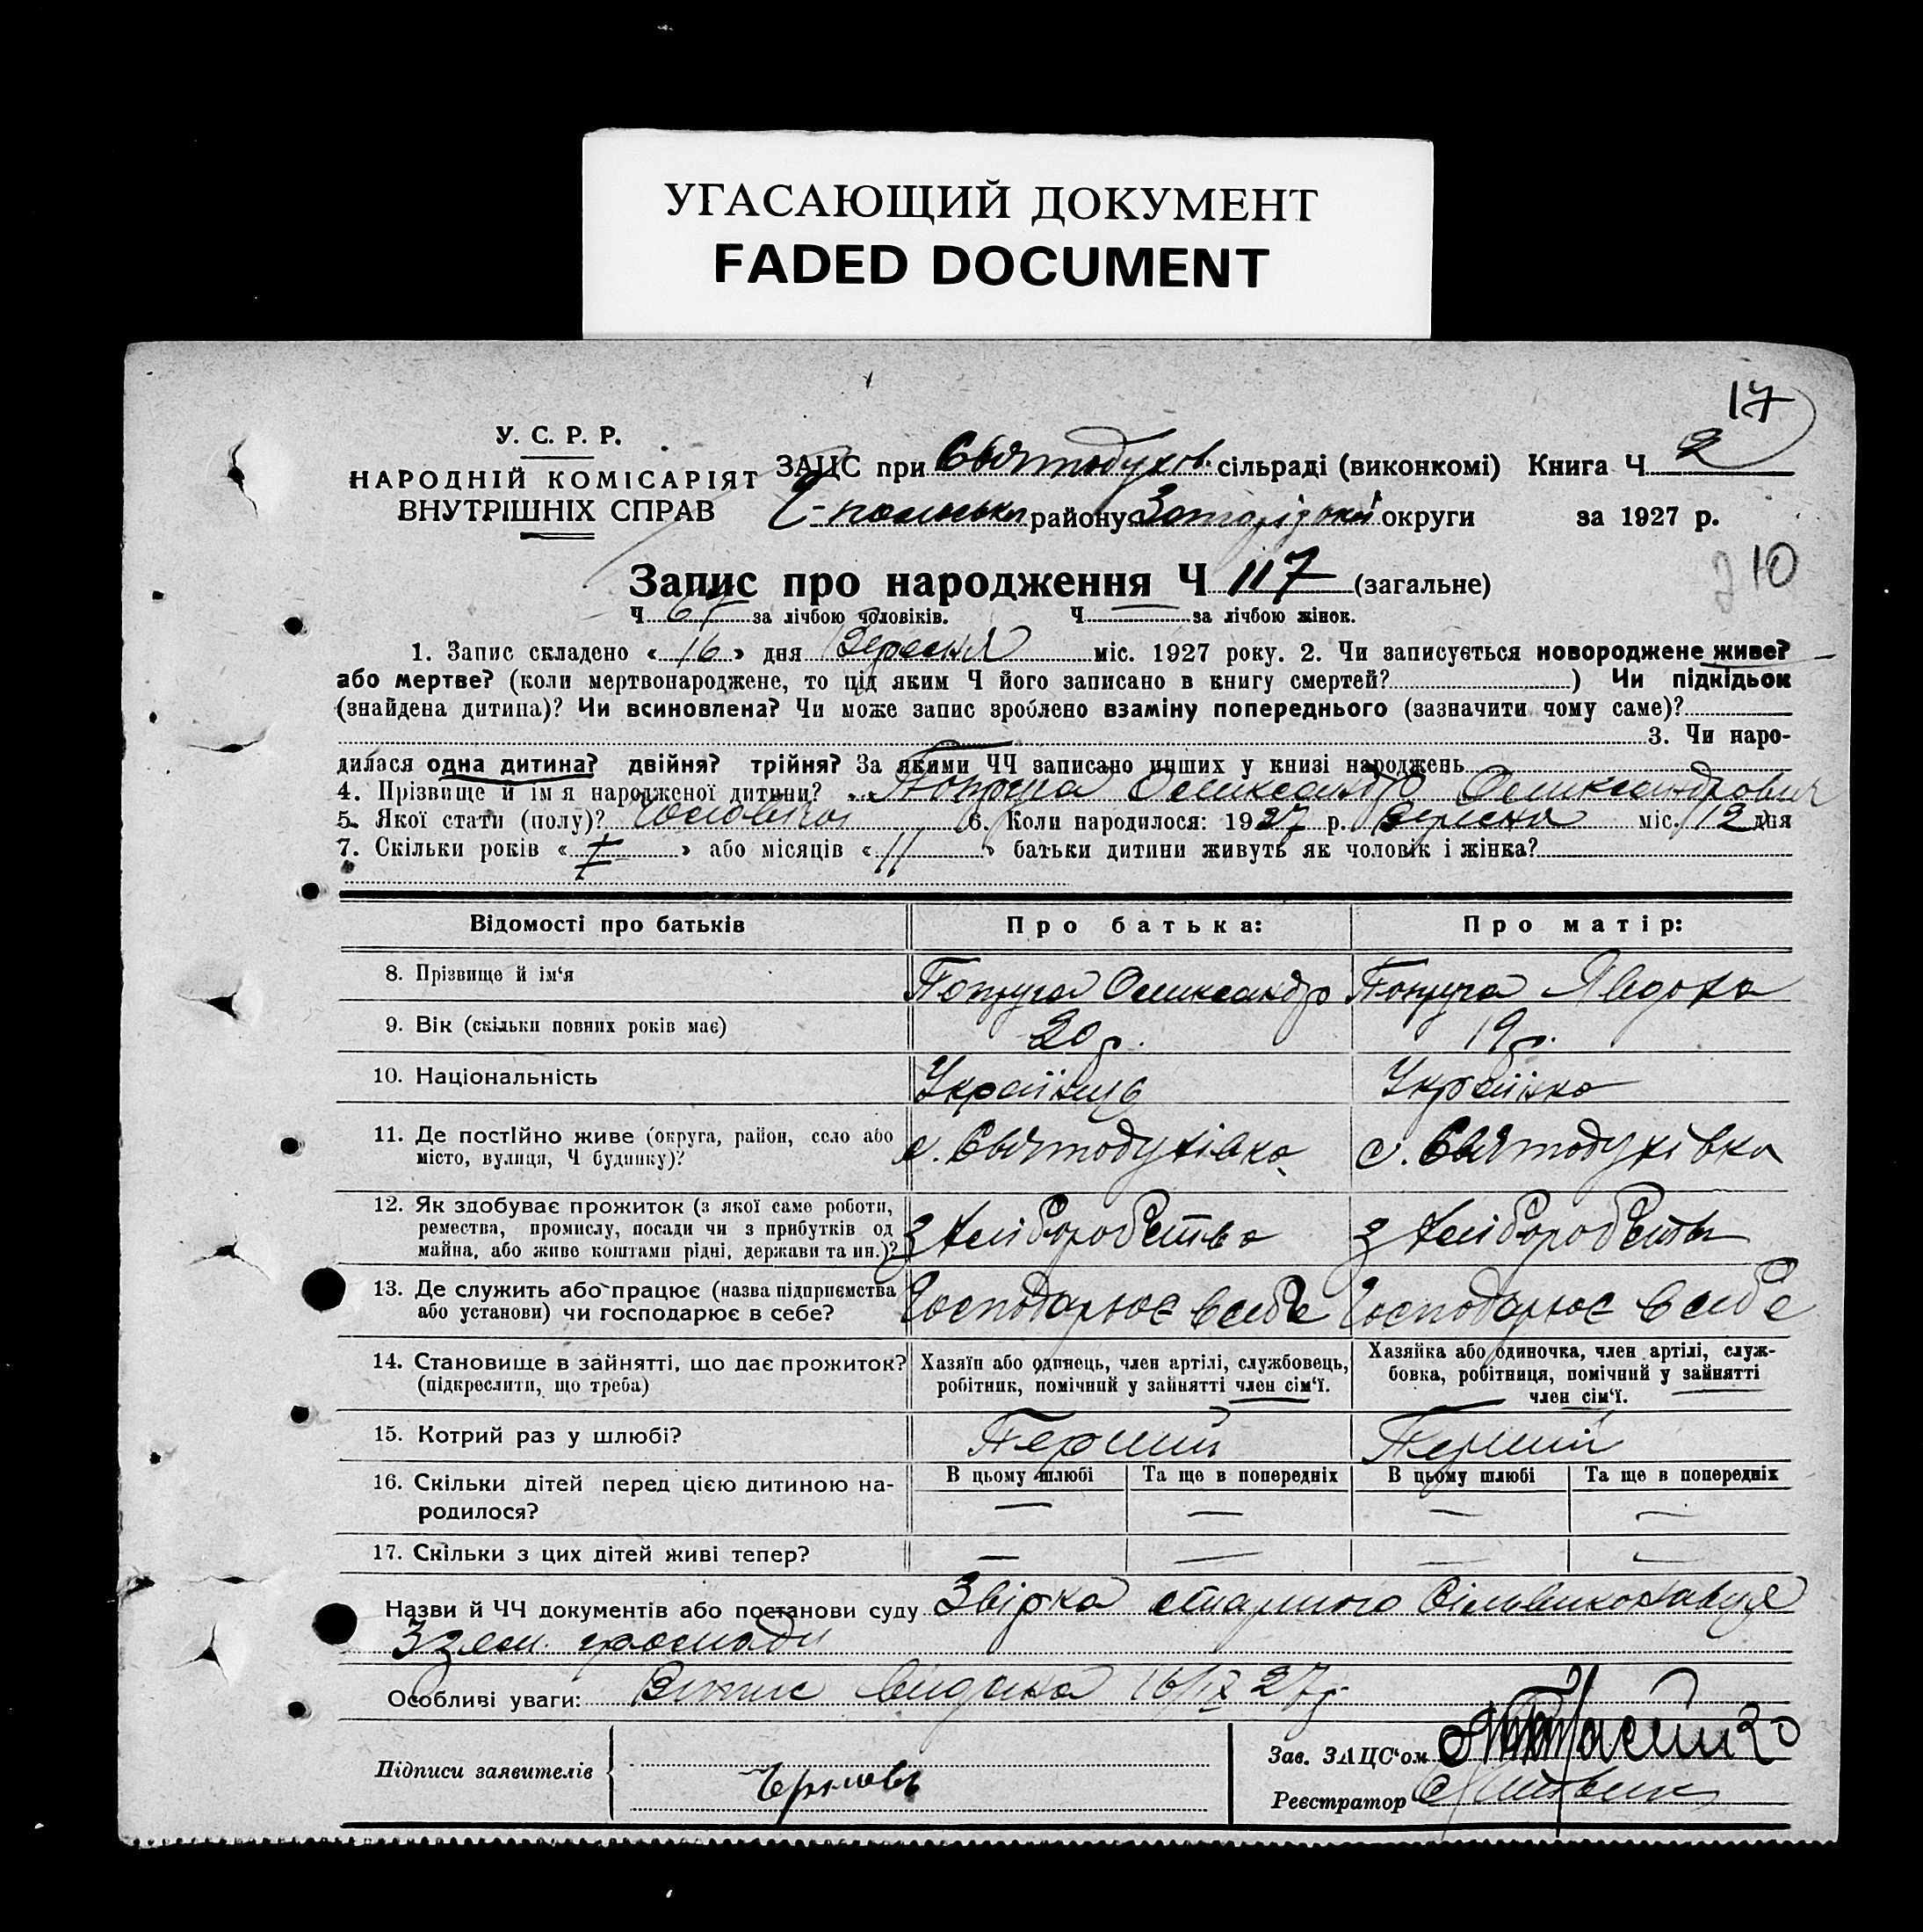 УГАСАЮЩИЙ ДОКУМЕНТ
FADED DOCUMENT
17
У. С. Р. Р.
НАРОДНІЙ КОМІСАРІЯТ
ВНУТРІШНІХ СПРАВ
ЗАЦС при Святодухів. сільраді (виконкомі) Книга Ч 2
району Запорізької округи за 1927 р.
210
Запис про народження Ч 117 (загальне)
Ч 67 за лічбою чоловіків. Ч — за лічбою жінок.
1. Запис складено « 16 » дня Вересня міс. 1927 року. 2. Чи записується новороджене живе?
або мертве? (коли мертвонароджене, то під яким Ч його записано в книгу смертей?) Чи підкідьок
(знайдена дитина)? Чи всиновлена? Чи може запис зроблено взаміну попереднього (зазначити чому саме)?
3. Чи наро-
дилася одна дитина? двійня? трійня? За якими ЧЧ записано инших у книзі народжень
4. Прізвище й ім'я народженої дитини? Попруга Олександр Олександрович
5. Якої стати (полу)? 6. Коли народилося: 1927 р. Вересня міс. 12 дня
7. Скільки років « I » або місяців « 11 » батьки дитини живуть як чоловік і жінка?
Відомості про батьків Про батька: Про матір:
8. Прізвище й ім'я Попруга Олександр Попруга Явдоха
9. Вік (скільки повних років має) 20 р. 19 р.
10. Національність Українець Українка
11. Де постІйно живе (округа, район, село або
місто, вулиця, Ч будинку)? с. Святодухівка с. Святодухівка
12. Як здобуває прожиток (з якої саме роботи,
ремества, промислу, посади чи з прибутків од
майна, або живе коштами рідні, держави та ин.)? З хліборобства З хліборобства
13. Де служить або працює (назва підприємства
або установи) чи господарює в себе? Господарює в себе Господарює в себе
14. Становище в зайнятті, що дає прожиток?
(підкреслити, що треба)
Хазяїн або одинець, член артілі, службовець,
робітник, помічний у зайнятті член сім'ї.
Хазяйка або одиночка, член артілі, служ-
бовка, робітниця, помічний у зайнятті
член сім'ї.
15. Котрий раз у шлюбі? Перший Перший
16. Скільки дітей перед цією дитиною на-
родилося?
В цьому шлюбі Та ще в попередніх В цьому шлюбі Та ще в попередніх
— — — —
17. Скільки з цих дітей живі тепер? — — — —
Назви й ЧЧ документів або постанови суду Звірка старшого Сільвиконавця
3 зем. громади
Особливі уваги: Витис видано 16/IX 27 р.
Підписи заявителів
Зав. ЗАЦС'ом
Реєстратор